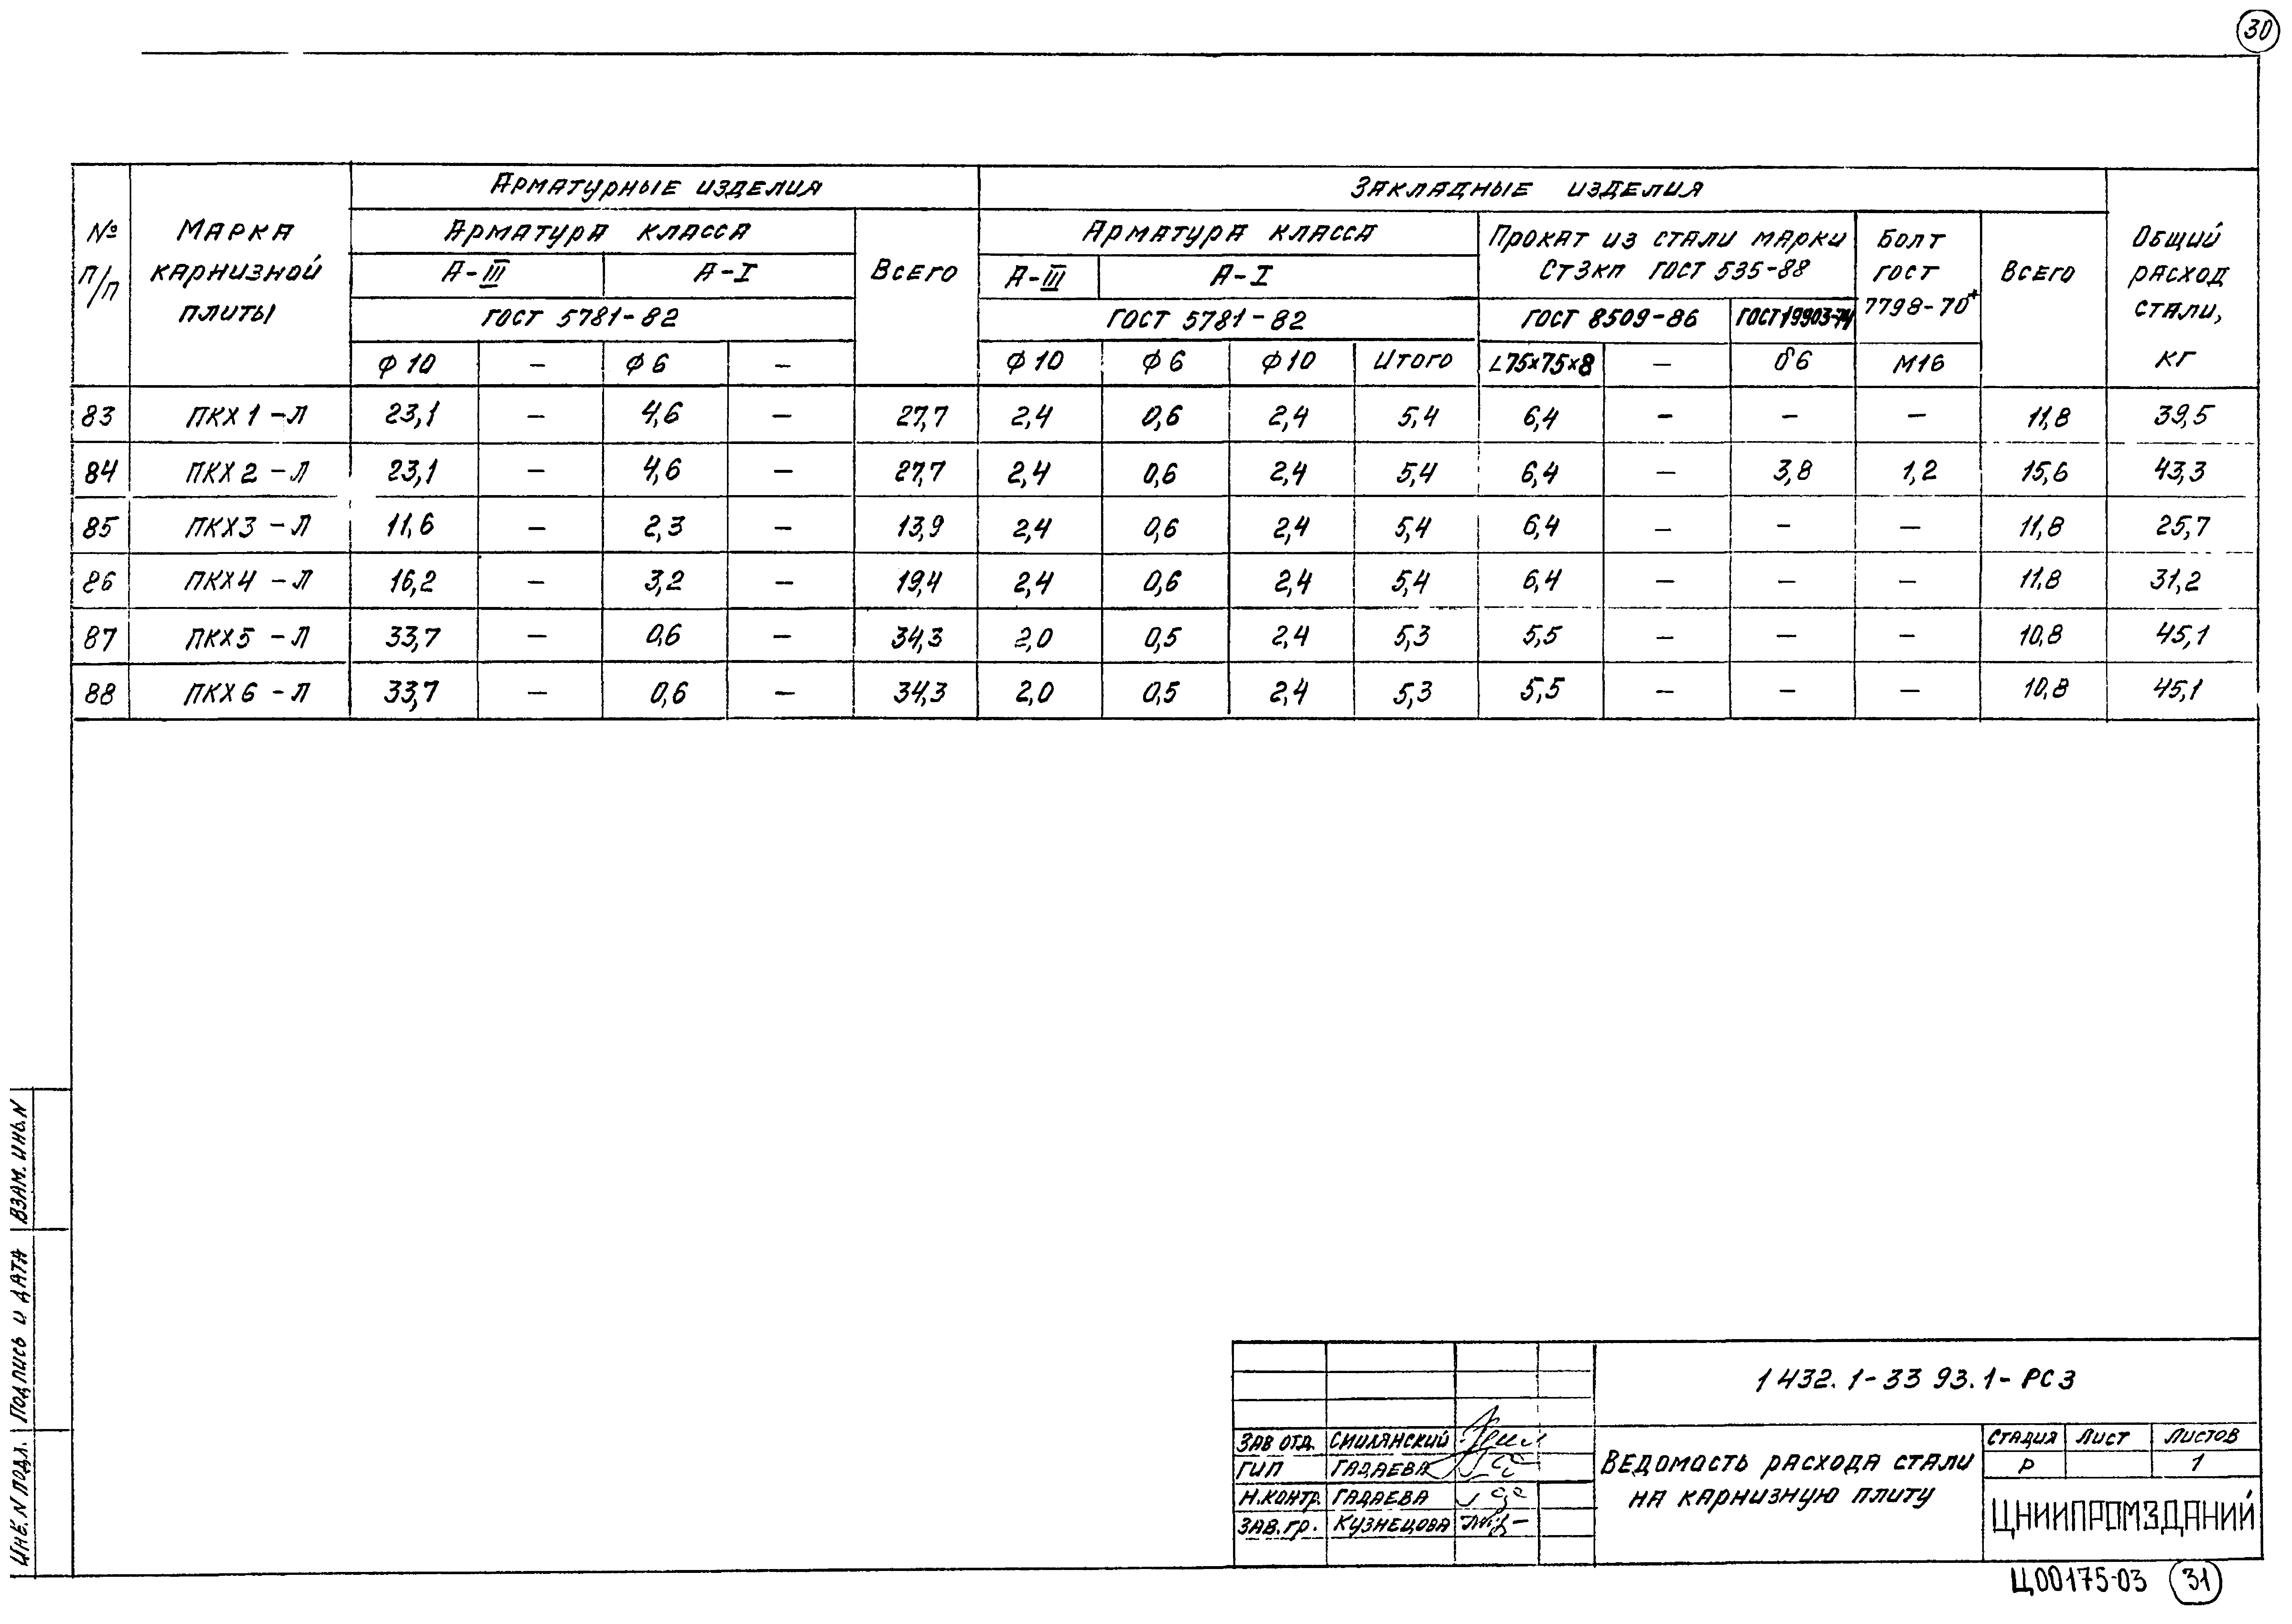 30
№ п/п | Марка карнизной плиты | Арматурные изделия | Закладные изделия | Общий расход стали, кг
Арматура класса | Всего | Арматура класса | Прокат из стали марки Ст3кп ГОСТ 535-88 | Болт ГОСТ 7798-70* | Всего
А-III | А-I | А-III | А-I
ГОСТ 5781-82 | ГОСТ 5781-82 | ГОСТ 8509-86 | ГОСТ 19903-74
Ф10 | — | Ф6 | — | Ф10 | Ф6 | Ф10 | Итого | L75×75×8 | — | δ6 | М16
83 | ПКХ1-Л | 23,1 | — | 4,6 | — | 27,7 | 2,4 | 0,6 | 2,4 | 5,4 | 6,4 | — | — | — | 11,8 | 39,5
84 | ПКХ2-Л | 23,1 | — | 4,6 | — | 27,7 | 2,4 | 0,6 | 2,4 | 5,4 | 6,4 | — | 3,8 | 1,2 | 15,6 | 43,3
85 | ПКХ3-Л | 11,6 | — | 2,3 | — | 13,9 | 2,4 | 0,6 | 2,4 | 5,4 | 6,4 | — | — | — | 11,8 | 25,7
86 | ПКХ4-Л | 16,2 | — | 3,2 | — | 19,4 | 2,4 | 0,6 | 2,4 | 5,4 | 6,4 | — | — | — | 11,8 | 31,2
87 | ПКХ5-Л | 33,7 | — | 0,6 | — | 34,3 | 2,0 | 0,5 | 2,4 | 5,3 | 5,5 | — | — | — | 10,8 | 45,1
88 | ПКХ6-Л | 33,7 | — | 0,6 | — | 34,3 | 2,0 | 0,5 | 2,4 | 5,3 | 5,5 | — | — | — | 10,8 | 45,1
Взам. инв. N
Подпись и дата
Инв. N подл.
1 432.1-33 93.1-РС3
Зав отд. Смилянский
ГИП Гадаева
Н.контр. Гадаева
Зав. гр. Кузнецова
Ведомость расхода стали
на карнизную плиту
Стадия Лист Листов
Р 1
ЦНИИПРОМЗДАНИЙ
Ц00175-03 31